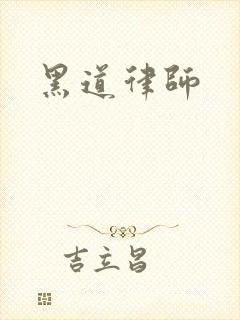 黑道律師
吉立昌